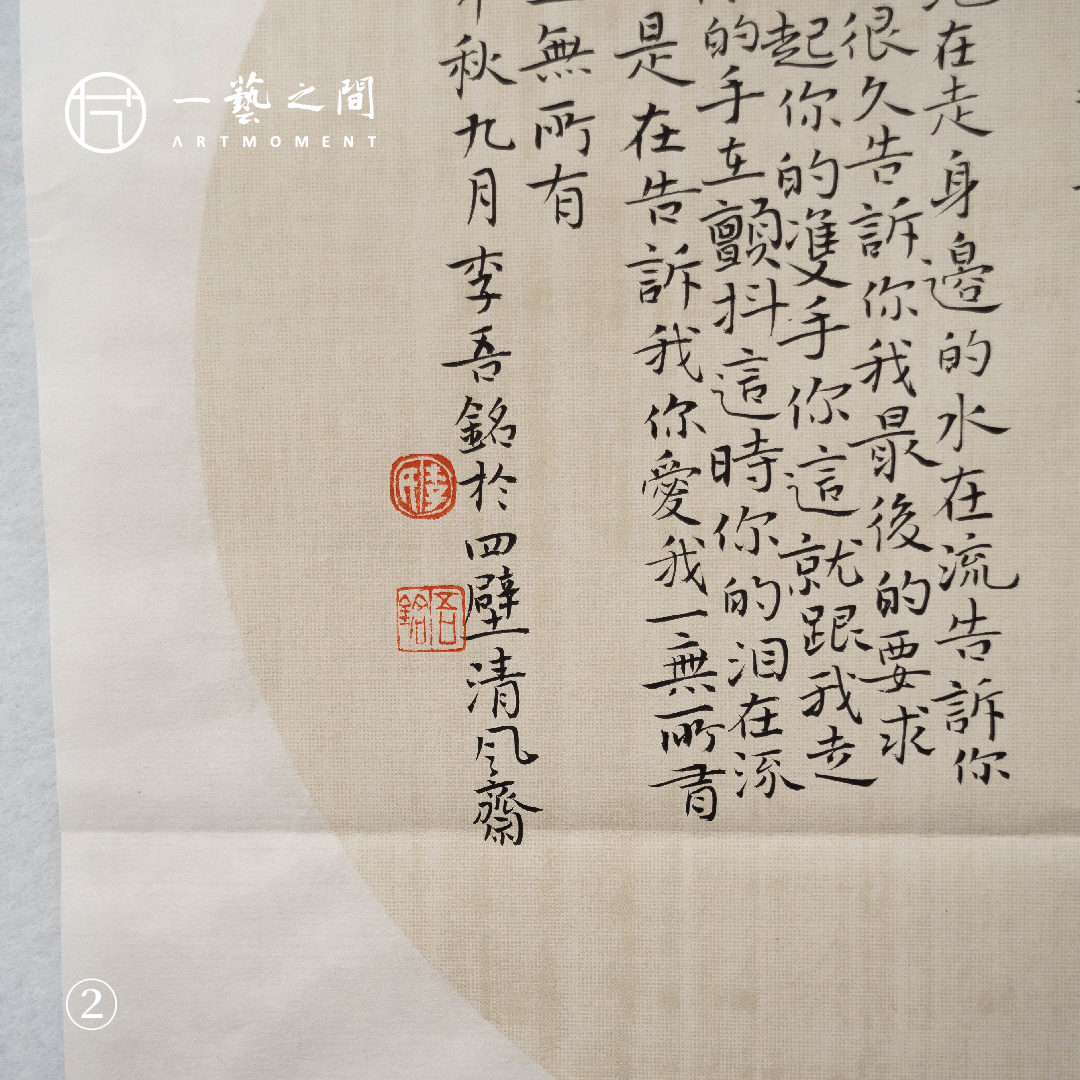 一藝之間
ARTMOMENT
在走身邊的水在流告訴你
很久告訴你我最後的要求
起你的雙手你這就跟我走
的手在顫抖這時你的泪在流
是在告訴我你愛我一無所有
無所有
秋九月李吾銘於四壁清风齋
吾銘
②